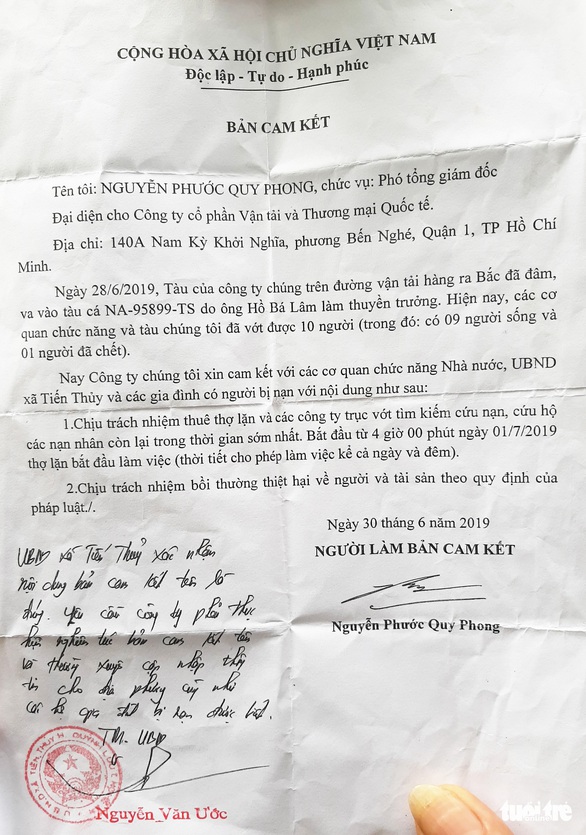 CỘNG HÒA XÃ HỘI CHỦ NGHĨA VIỆT NAM
Độc lập - Tự do - Hạnh phúc
BẢN CAM KẾT
Tên tôi: NGUYỄN PHƯỚC QUY PHONG, chức vụ: Phó tổng giám đốc
Đại diện cho Công ty cổ phần Vận tải và Thương mại Quốc tế.
Địa chỉ: 140A Nam Kỳ Khởi Nghĩa, phương Bến Nghé, Quận 1, TP Hồ Chí
Minh.
Ngày 28/6/2019, Tàu của công ty chúng trên đường vận tải hàng ra Bắc đã đâm,
va vào tàu cá NA-95899-TS do ông Hồ Bá Lâm làm thuyền trưởng. Hiện nay, các cơ
quan chức năng và tàu chúng tôi đã vớt được 10 người (trong đó: có 09 người sống và
01 người đã chết).
Nay Công ty chúng tôi xin cam kết với các cơ quan chức năng Nhà nước, UBND
xã Tiến Thủy và các gia đình có người bị nạn với nội dung như sau:
1.Chịu trách nhiệm thuê thợ lặn và các công ty trục vớt tìm kiếm cứu nạn, cứu hộ
các nạn nhân còn lại trong thời gian sớm nhất. Bắt đầu từ 4 giờ 00 phút ngày 01/7/2019
thợ lặn bắt đầu làm việc (thời tiết cho phép làm việc kể cả ngày và đêm).
2.Chịu trách nhiệm bồi thường thiệt hại về người và tài sản theo quy định của
pháp luật./.
Ngày 30 tháng 6 năm 2019
NGƯỜI LÀM BẢN CAM KẾT
Nguyễn Phước Quy Phong
UBND xã Tiến Thuỷ xác nhận
nội dung bản cam kết trên là
đúng. Yêu cầu công ty phải thực
hiện nghiêm túc bản cam kết trên
và thường xuyên cập nhập thông
tin cho địa phương cũng như
các hộ gia đình bị nạn được biết.
TM. UBND
Nguyễn Văn Ước
tuổi trẻ